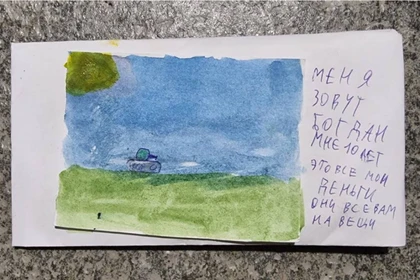 МЕНЯ
ЗОВУТ
БОГДАН
МНЕ 10 ЛЕТ
ЭТО ВСЕ МОИ
ДЕНЬГИ
ОНИ ВСЕ ВАМ
НА ВЕЩИ